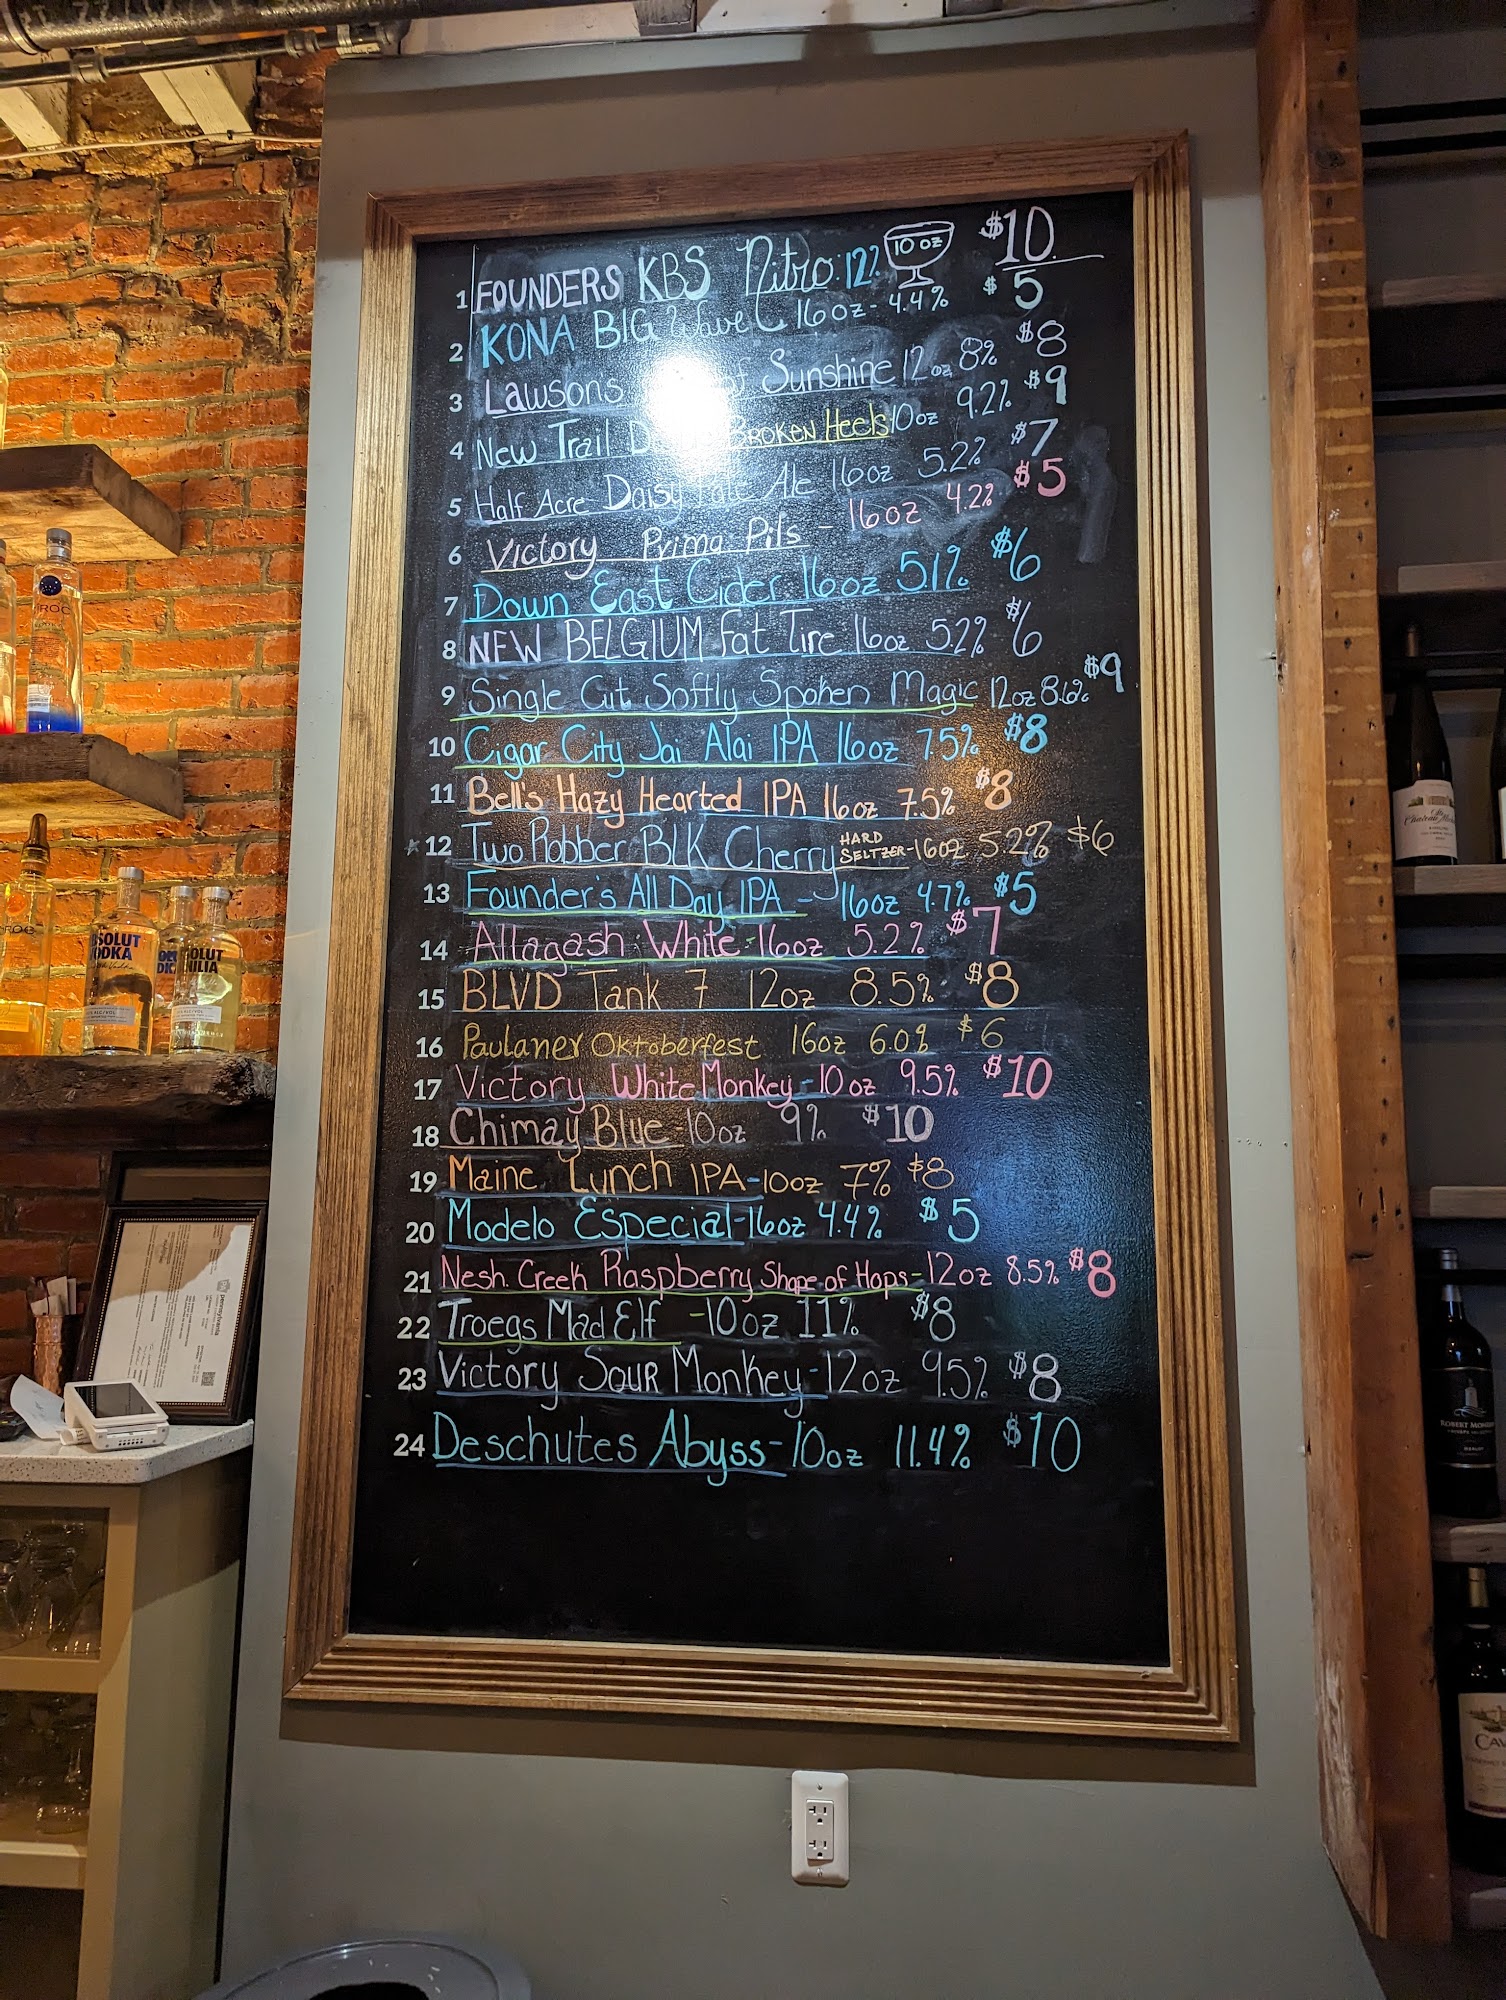 1 FOUNDERS KBS Nitro 12% 10 oz $10
2 KONA BIG Wave 16oz - 4.4% $5
3 Lawsons of Sunshine 12oz 8% $8
4 New Trail BROKEN Heels 10oz 9.2% $9
5 Half Acre Daisy Pale Ale 16oz 5.2% $7
6 Victory Prima Pils - 16oz 4.2% $5
7 Down East Cider 16oz 5.1% $6
8 NEW BELGIUM Fat Tire 16oz 5.2% $6
9 Single Cut Softly Spoken Magic 12oz 8.6% $9
10 Cigar City Jai Alai IPA 16oz 7.5% $8
11 Bell's Hazy Hearted IPA 16oz 7.5% $8
12 Two Robber BLK Cherry HARD SELTZER - 16oz 5.2% $6
13 Founder's All Day IPA - 16oz 4.7% $5
14 Allagash White - 16oz 5.2% $7
15 BLVD Tank 7 12oz 8.5% $8
16 Paulaner Oktoberfest 16oz 6.0% $6
17 Victory White Monkey - 10oz 9.5% $10
18 Chimay Blue - 10oz 9% $10
19 Maine Lunch IPA - 10oz 7% $8
20 Modelo Especial - 16oz 4.4% $5
21 Nesh. Creek Raspberry Shape of Hops - 12oz 8.5% $8
22 Troegs Mad Elf - 10oz 11% $8
23 Victory Sour Monkey - 12oz 9.5% $8
24 Deschutes Abyss - 10oz 11.4% $10
ABSOLUT
VODKA
pennsylvania
ROBERT MONDAVI